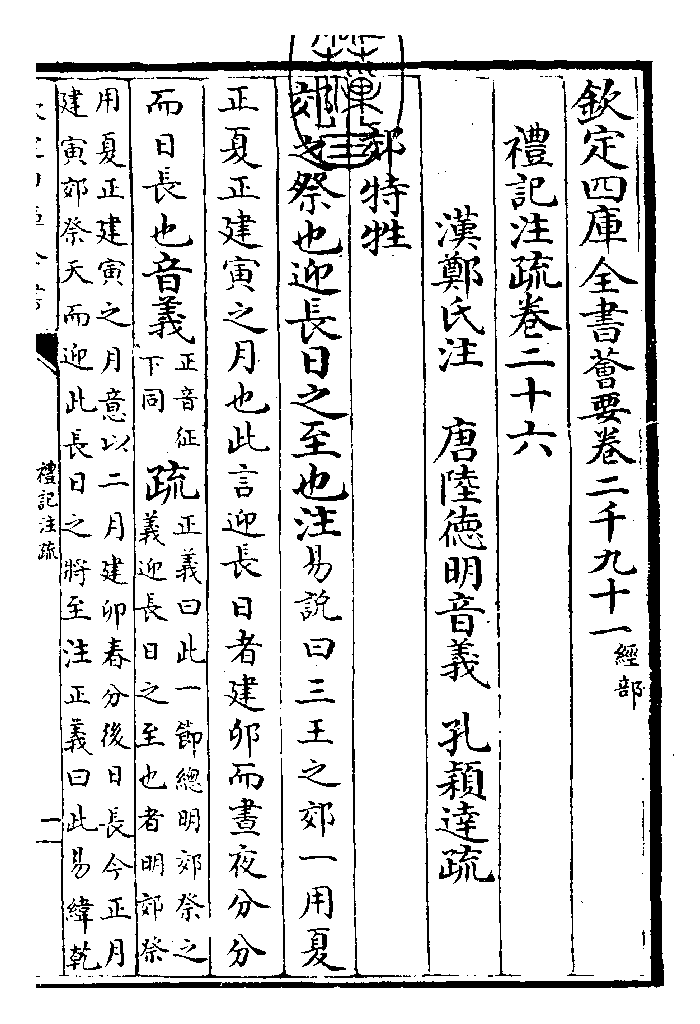 欽定四庫全書薈要卷二千九十一 經部
禮記注疏卷二十六
漢鄭氏注 唐陸德明音義 孔穎達疏
郊特牲
郊之祭也迎長日之至也注易說曰三王之郊一用夏
正夏正建寅之月也此言迎長日者建卯而晝夜分分
而日長也音義正音征下同疏正義曰此一節總明郊祭之義迎長日之至也者明郊祭
用夏正建寅之月意以二月建卯春分後日長今正月
建寅郊祭天而迎此長日之將至注正義曰此易緯乾
禮記注疏
一